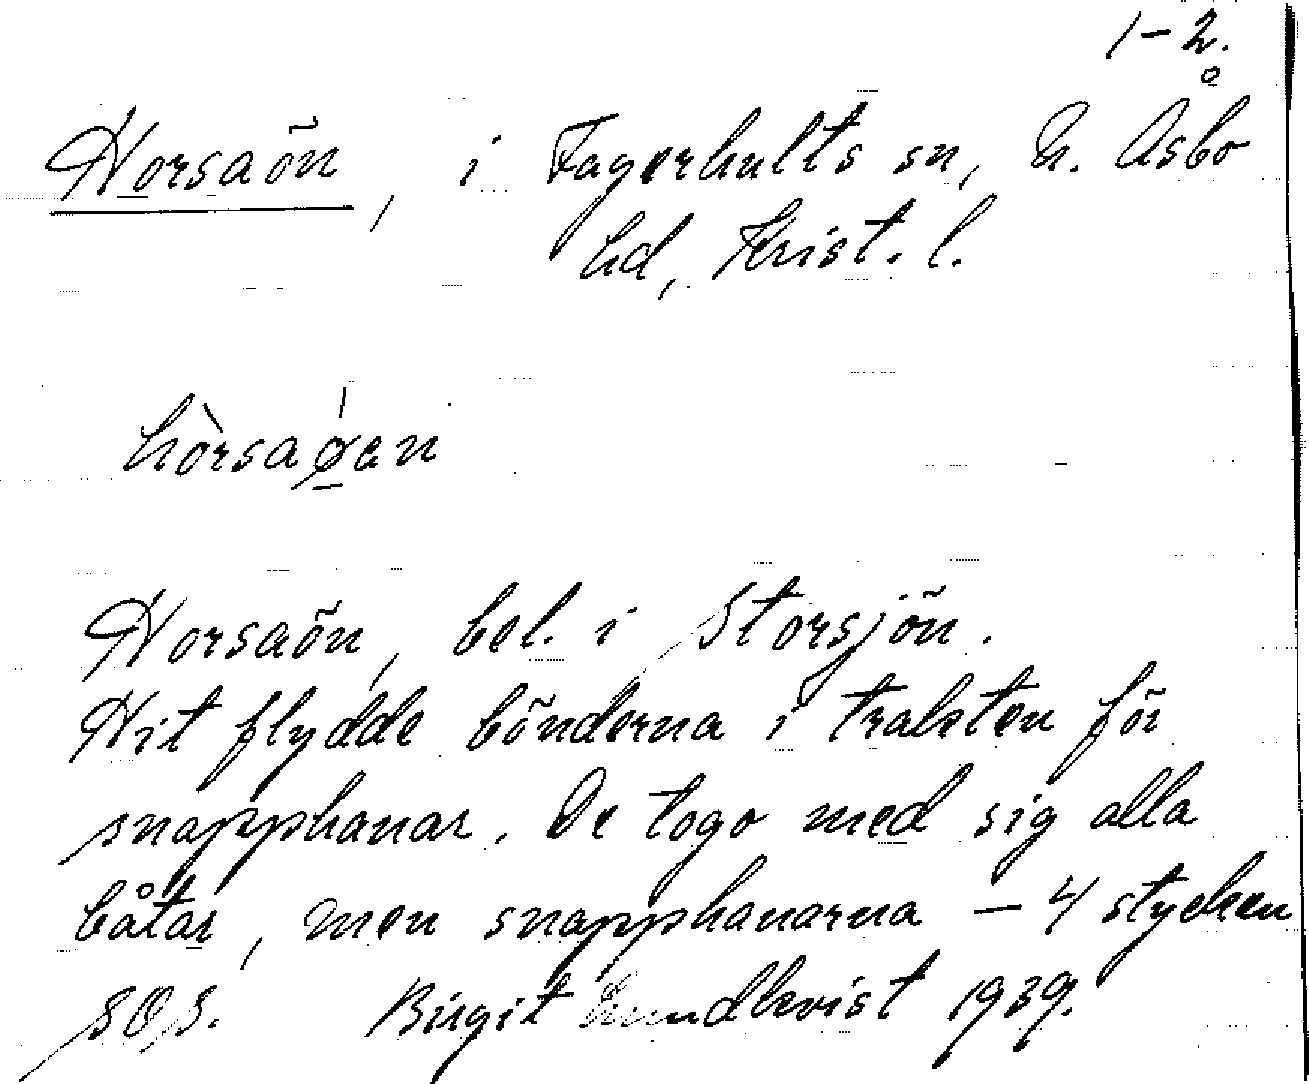 1-2.
Horsaön, i Fagerhults sn, N. Åsbo
hd, Krist. l.
hòrsaǿen
Horsaön, bel. i Storsjön.
Hit flydde bönderna i trakten för
snapphanar. De togo med sig alla
båtar, men snapphanarna - 4 stycken
SOS. Birgit Lundkvist 1939.